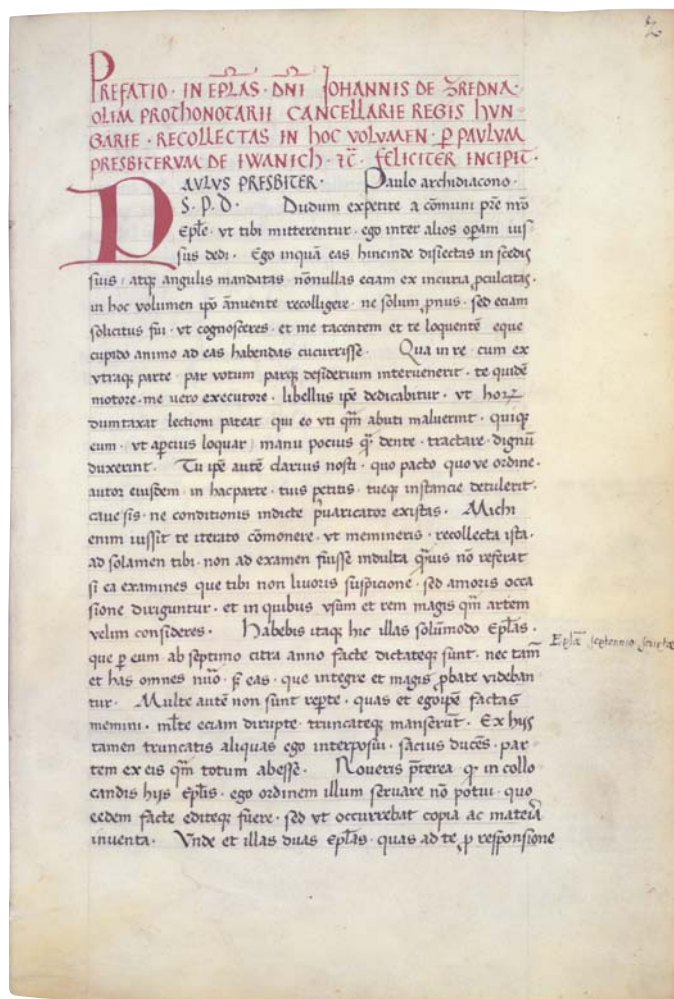 2
PREFATIO · IN EP̄LAS · DN̄I IOHANNIS DE ZREDNA ·
OLIM PROTHONOTARII CANCELLARIE REGIS HVN
GARIE · RECOLLECTAS IN HOC VOLVMEN · P̱ PAVLVM
PRESBITERVM DE IWANICH · ⁊C̄ · FELICITER INCIPIT ·
PAVLVS PRESBITER · Paulo archidiacono ·
S · P · D · Dudum expetite a cōmuni pr̄e nr̄o
Ep̄le · vt tibi mitterentur · ego inter alios oꝑam ius
sus dedi · Ego inquā eas hincinde disiectas in scedis
suis / atqꝫ angulis mandatas nōnullas eciam ex incuria ꝓculcatas ·
in hoc volumen ip̄o ānuente recolligere · ne solum ꝓnus · sed eciam
solicitus fui · vt cognosceres · et me tacentem et te loquentē eque
cupido animo ad eas habendas cucurrisse · Qua in re · cum ex
vtraqꝫ parte · par votum parqꝫ desiderium intervenerit · te quidē
motore · me uero executore · libellus ip̄e dedicabitur · vt hoꝝ
dumtaxat lectioni pateat qui eo vti qm̄ abuti maluerint · quiqꝫ
eum · vt aꝑcius loquar / manu pocius qͣ̄ dente · tractare · dignū
duxerint · Tu ip̄e autē clarius nosti · quo pacto quo ve ordine ·
autor eiusdem · in hac parte · tuis petitis · tueqꝫ instancie detulerit ·
caue sis · ne conditionis indicte p̄uaricator existas · Michi
enim iussit te iterato cōmonere · vt memineris · recollecta ista ·
ad solamen tibi · non ad examen fuisse indulta qͣ̄uis nō referat
si ea examines que tibi non liuoris suspicione · sed amoris occa
sione diriguntur · et in quibus vsum et rem magis qm̄ artem
velim consideres · Habebis itaqꝫ hic illas solūmodo Ep̄las ·
que ꝑ eum ab septimo citra anno facte dictateqꝫ sunt · nec tam̄
Ep̄lae septennio scriptae
et has omnes · sꝫ eas · que integre et magis ꝓbate videban
tur · Multe autē non sunt reꝑte · quas et egoip̄e factas
memini · ml̄te eciam dirupte · truncateqꝫ manserūt · Ex hijs
tamen truncatis aliquas ego interposui · sacius ducēs · par
tem ex eis qm̄ totum abesse · Noueris p̄terea · qꝫ in collo
candis hijs Ep̄lis · ego ordinem illum seruare nō potui · quo
eedem facte editeqꝫ fuere · sed vt occurrebat copia ac materia
inuenta · Vnde et illas duas Ep̄las · quas ad te ꝓ responsione